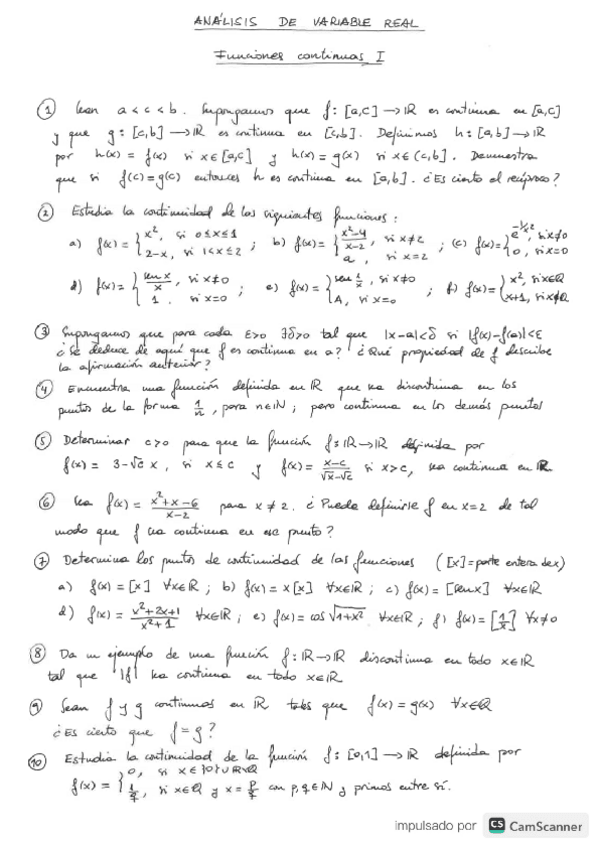 ANÁLISIS DE VARIABLE REAL
Funciones continuas I
① Sean a < c < b. Supongamos que f: [a,c] → ℝ es continua en [a,c]
y que g: [c,b] → ℝ es continua en [c,b]. Definimos h: [a,b] → ℝ
por h(x) = f(x) si x ∈ [a,c] y h(x) = g(x) si x ∈ (c,b]. Demuestra
que si f(c) = g(c) entonces h es continua en [a,b]. ¿Es cierto el recíproco?
② Estudia la continuidad de las siguientes funciones:
a) f(x) = { x², si 0≤x≤1 ; 2-x, si 1<x≤2 ; b) f(x) = { (x²-4)/(x-2), si x≠2 ; a, si x=2 ; (c) f(x) = { e^(-1/x²), si x≠0 ; 0, si x=0
d) f(x) = { sen x/x, si x≠0 ; 1, si x=0 ; e) f(x) = { sen 1/x, si x≠0 ; A, si x=0 ; f) f(x) = { x², si x∈ℚ ; x+1, si x∉ℚ
③ Supongamos que para cada ε>0 ∃δ>0 tal que |x-a|<δ si |f(x)-f(a)|<ε
¿Se deduce de aquí que f es continua en a? ¿Qué propiedad de f describe
la afirmación anterior?
④ Encuentra una función definida en ℝ que sea discontinua en los
puntos de la forma 1/n, para n∈ℕ; pero continua en los demás puntos
⑤ Determinar c>0 para que la función f: ℝ → ℝ definida por
f(x) = 3-√c x, si x ≤ c y f(x) = (x-c)/(√x-√c) si x>c, sea continua en ℝ
⑥ Sea f(x) = (x²+x-6)/(x-2) para x ≠ 2. ¿Puede definirse f en x=2 de tal
modo que f sea continua en ese punto?
⑦ Determina los puntos de continuidad de las funciones ([x]=parte entera de x)
a) f(x) = [x] ∀x∈ℝ; b) f(x) = x[x] ∀x∈ℝ; c) f(x) = [sen x] ∀x∈ℝ
d) f(x) = (x²+2x+1)/(x²+1) ∀x∈ℝ; e) f(x) = cos √(1+x²) ∀x∈ℝ; f) f(x) = [1/x] ∀x≠0
⑧ Da un ejemplo de una función f: ℝ → ℝ discontinua en todo x∈ℝ
tal que |f| sea continua en todo x∈ℝ
⑨ Sean f y g continuas en ℝ tales que f(x) = g(x) ∀x∈ℚ
¿Es cierto que f = g?
⑩ Estudia la continuidad de la función f: [0,1] → ℝ definida por
f(x) = { 0, si x ∈ {0} ∪ ℝ\ℚ ; 1/q, si x∈ℚ y x = p/q con p,q∈ℕ y primos entre sí.
impulsado por CS CamScanner